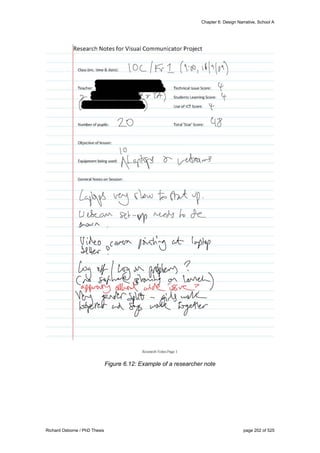 Chapter 6: Design Narrative, School A
Research Notes for Visual Communicator Project
Class/set, time & date: 10C / Fri 1 (9:00, 16/9/09)
Teacher: Technical Issue Score: 4
2 TA) Students Learning Score: 4
( ) Use of ICT Score: 4
Number of pupils: 20 Total 'Star' Score: 48
Objective of lesson:
10
Equipment being used: Laptops & webcams
General Notes on Session:
Laptops very slow to start up.
Webcam set-up needs to be
shown.
Video camera pointing at laptop
better?
Log off / Log on problems?
(no software on launch)
apparently network wide issue?
Very gender split – girls work
together and boys work together
Research Notes Page 1
Figure 6.12: Example of a researcher note
Richard Osborne / PhD Thesis page 202 of 525